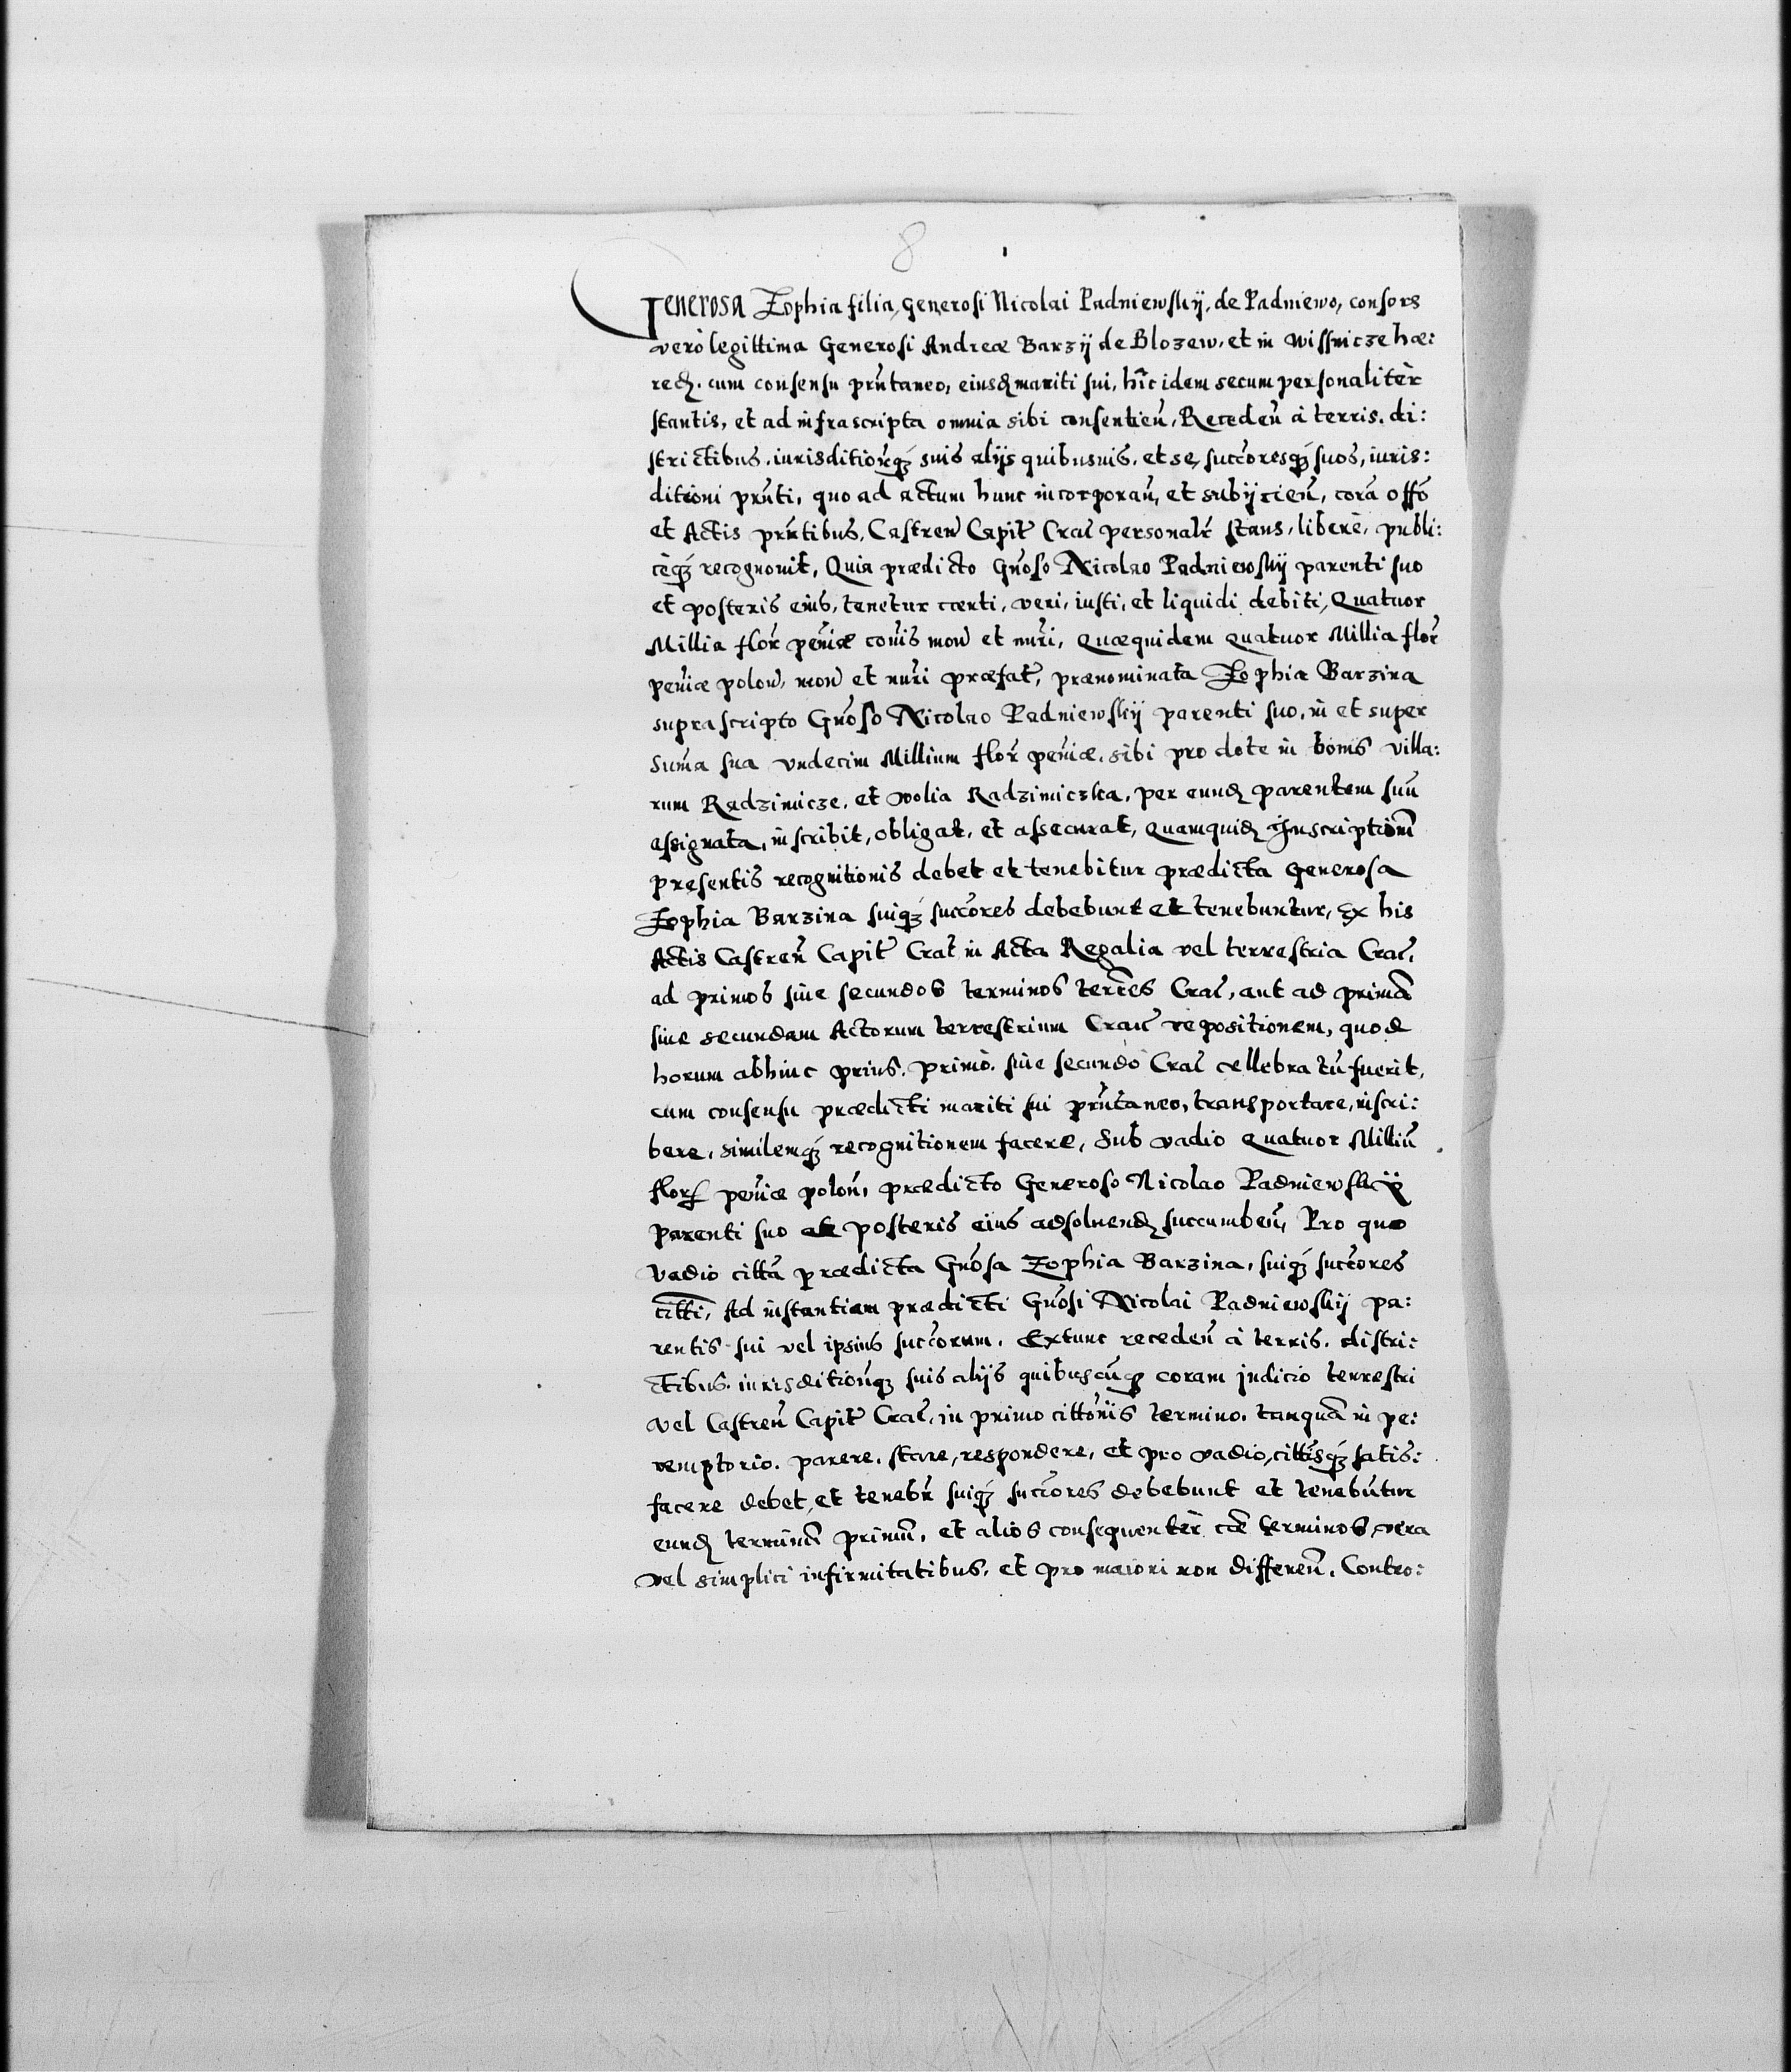 8
Generosa Zophia filia, Generosi Nicolai Padniewskij, de Padniewo, consors
vero legittima Generosi Andreæ Barzij de Blozew, et in Wissnicze hæ:
red. cum consensu prñtaneo, eiusd mariti sui, hic idem secum personalitèr
stantis, et ad infrascripta omnia sibi consentieñ, Recedeñ à terris, di:
strictibus, iurisditionq3 suis alijs quibusuis, et se, succoresq3 suos, iuris:
ditioni prñti, quo ad actum hunc incorporañ, et subijcieñ, corã offõ
et Actis prñtibus, Castreñ Capit Crac personalr stans, liberè, publi:
cèq3 recognouit, Quia prædicto Gnoso Nicolao Padniewskij parenti suo
et posteris eius, tenetur certi, veri, iusti, et liquidi debiti, Quatuor
Millia flor peñiæ cõis moñ et nũri, Quæquidem quatuor Millia flor
peñiæ poloñ, moñ et nũri præfat, prænominata Zophia Barzina
suprascripto Gnoso Nicolao Padniewskij parenti suo, in et super
Sum̃a sua vndecim Millium flor peñiæ, sibi pro dote in bonis villa:
rum Radzimicze, et Wolia Radzimiczka, per eund parentem suũ
assignata, inscribit, obligat, et assecurat, Quamquid Inscriptionẽ
presentis recognitionis debet et tenebitur prædicta Generosa
Zophia Barzina suiq3 succores debebunt et tenebuntur, Ex his
Actis Castreñ Capit Crac in Acta Regalia vel terrestria Crac,
ad primos siue secundos terminos terres Crac, aut ad primã
siue secundam Actorum terrestrium Crac repositionem, quod
horum abhinc prius, primò, siue secundò Crac cellebratũ fuerit,
cum consensu prædicti mariti sui prñtaneo, transportare, inscri:
bere, similemq3 recognitionem facere, Sub vadio Quatuor Milliũ
flor peñiæ poloñ, prædicto Generoso Nicolao Padniewskij
parenti suo et posteris eius adsoluend succumbeñ, Pro quo
Vadio cittã prædicta Gnosa Zophia Barzina, suiq3 succores
citti, Ad instantiam prædicti Gnosi Nicolai Padniewskij pa:
rentis sui vel ipsius succorum. Extunc recedeñ à terris, distri:
ctibus, iurisditionq3 suis alijs quibuscũq3 coram judicio terrestri
vel Castreñ Capit Crac, in primo cittonis termino, tanquã in pe:
remptorio, parere, stare, respondere, et pro vadio, cittisq3 satis:
facere debet, et tenebr suiq3 succores debebunt et tenebũtur
eund terminũ primũ, et alios consequentèr terminos, vera
vel simplici infirmitatibus, et pro maiori non differeñ, Contro: